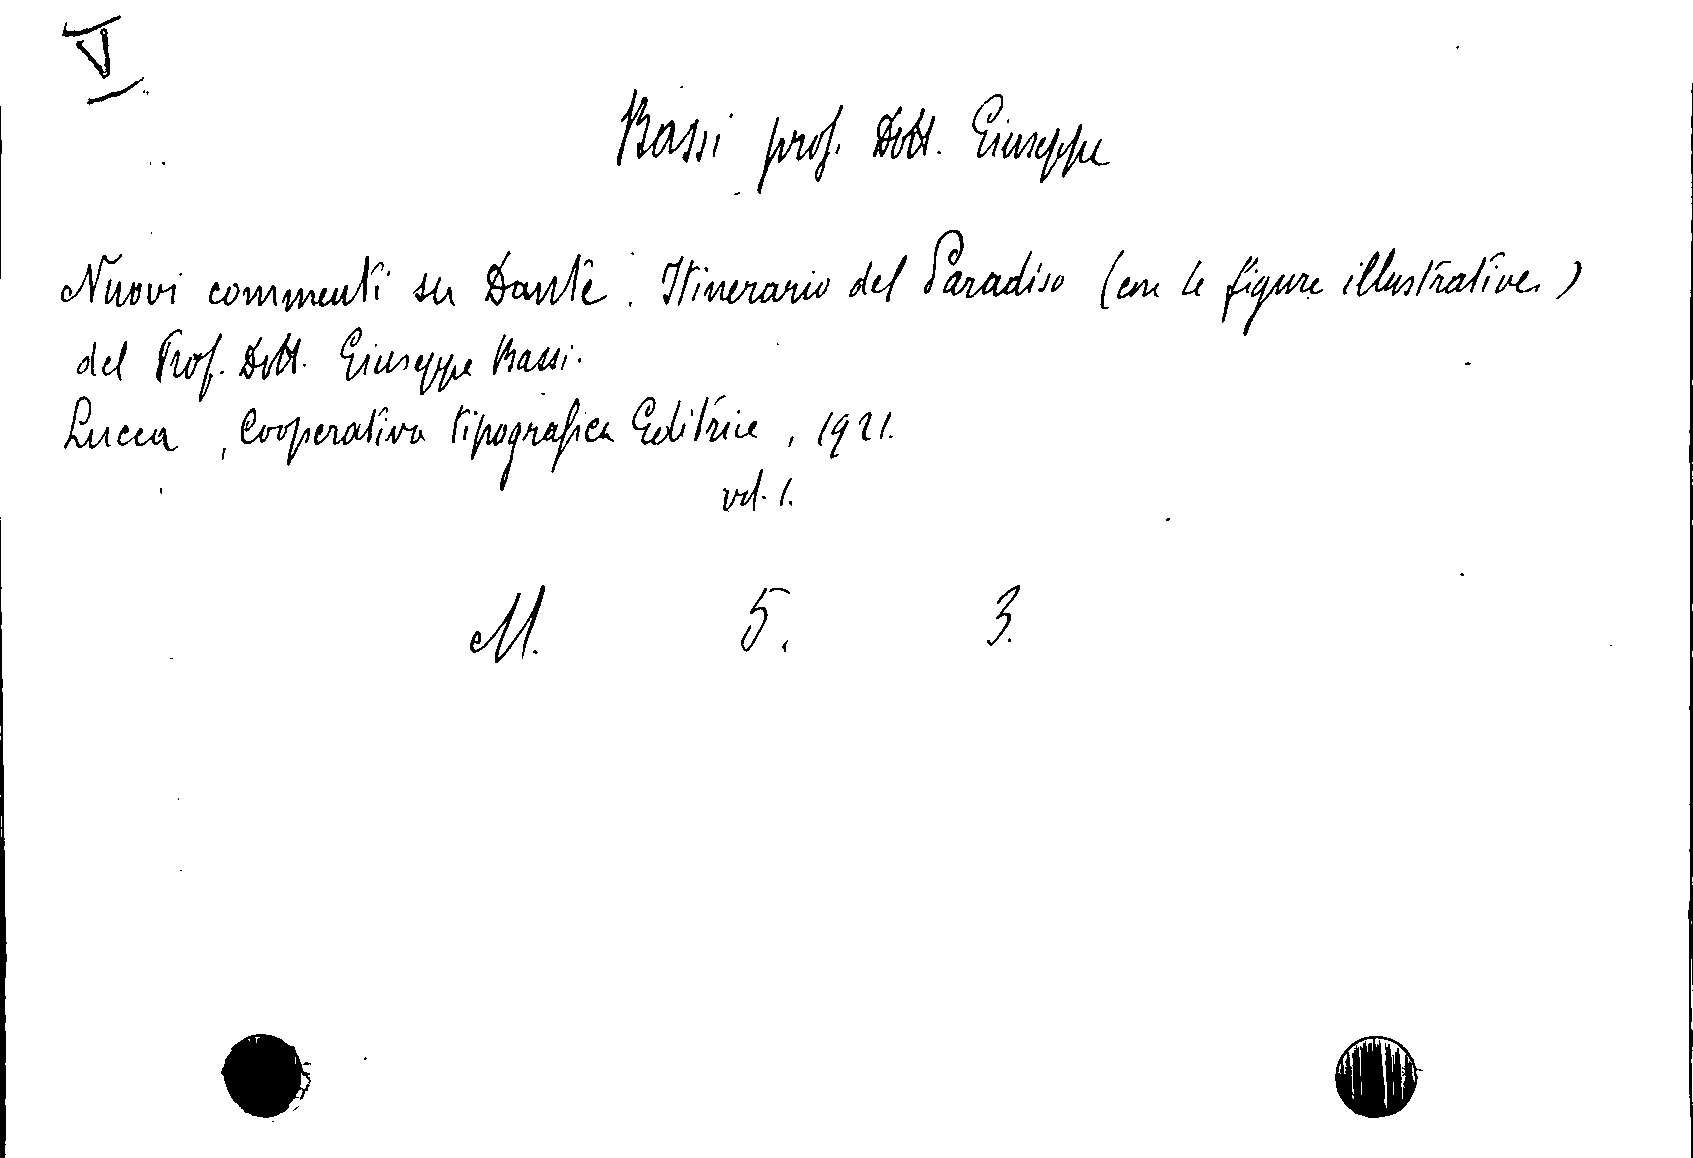 V
Bassi prof. Dott. Giuseppe
Nuovi commenti su Dante. Itinerario del Paradiso (con le figure illustrative)
del Prof. Dott. Giuseppe Bassi.
Lucca, Cooperativa tipografica Editrice, 1921.
vol. 1.
M. 5. 3.